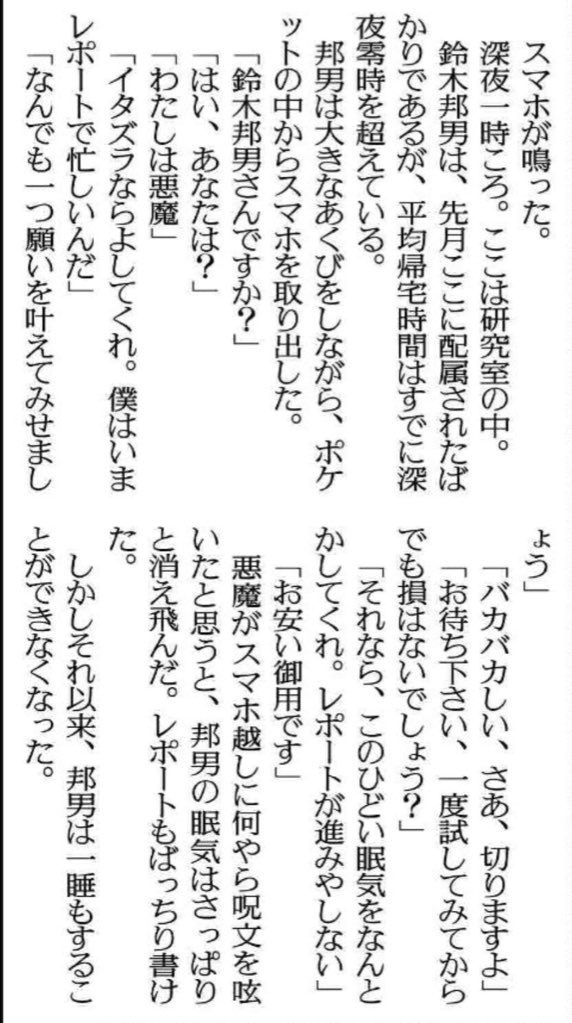 スマホが鳴った。
深夜一時ころ。ここは研究室の中。
鈴木邦男は、先月ここに配属されたば
かりであるが、平均帰宅時間はすでに深
夜零時を超えている。
邦男は大きなあくびをしながら、ポケ
ットの中からスマホを取り出した。
「鈴木邦男さんですか？」
「はい、あなたは？」
「わたしは悪魔」
「イタズラならよしてくれ。僕はいま
レポートで忙しいんだ」
「なんでも一つ願いを叶えてみせまし
ょう」
「バカバカしい、さあ、切りますよ」
「お待ち下さい、一度試してみてから
でも損はないでしょう？」
「それなら、このひどい眠気をなんと
かしてくれ。レポートが進みやしない」
「お安い御用です」
悪魔がスマホ越しに何やら呪文を呟
いたと思うと、邦男の眠気はさっぱり
と消え飛んだ。レポートもばっちり書け
た。
しかしそれ以来、邦男は一睡もするこ
とができなくなった。